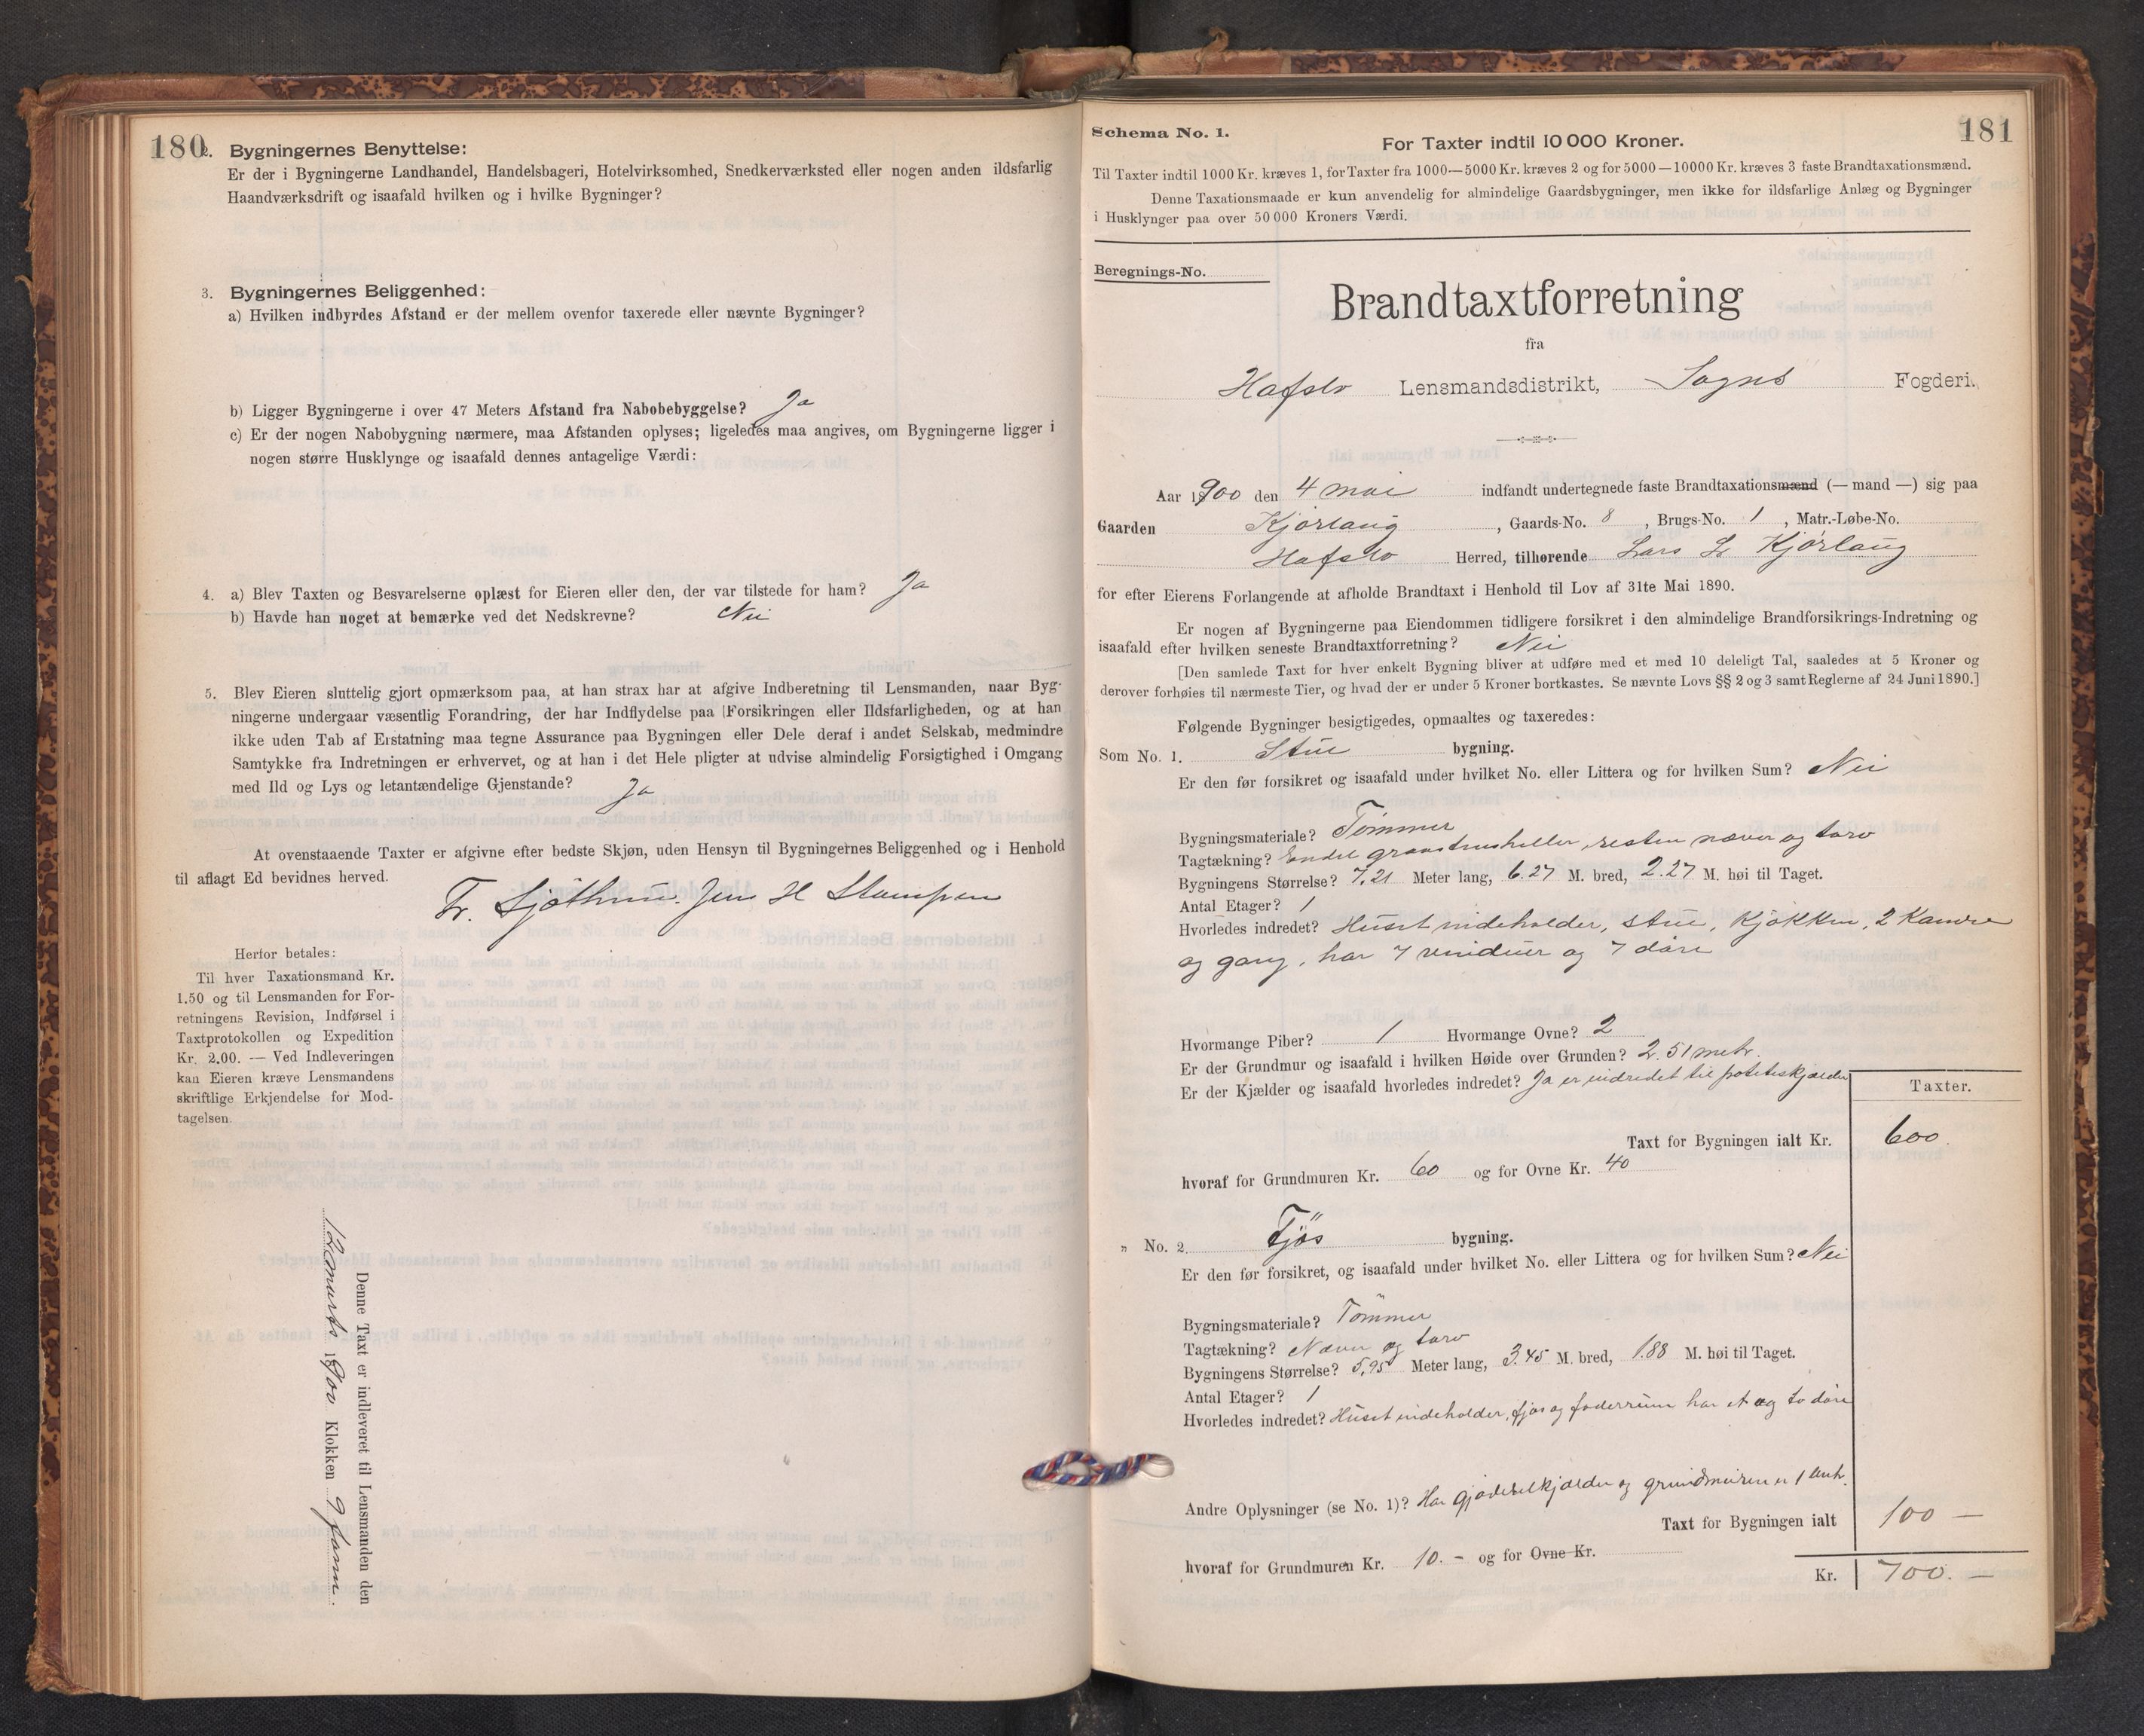 180
2. Bygningernes Benyttelse:
Er der i Bygningerne Landhandel, Handelsbageri, Hotelvirksomhed, Snedkerværksted eller nogen anden ildsfarlig
Haandværksdrift og isaafald hvilken og i hvilke Bygninger?
3. Bygningernes Beliggenhed:
a) Hvilken indbyrdes Afstand er der mellem ovenfor taxerede eller nævnte Bygninger?
b) Ligger Bygningerne i over 47 Meters Afstand fra Nabobebyggelse? Ja
c) Er der nogen Nabobygning nærmere, maa Afstanden oplyses; ligeledes maa angives, om Bygningerne ligger i
nogen større Husklynge og isaafald dennes antagelige Værdi:
4. a) Blev Taxten og Besvarelserne oplæst for Eieren eller den, der var tilstede for ham? Ja
b) Havde han noget at bemærke ved det Nedskrevne? Nei
5. Blev Eieren sluttelig gjort opmærksom paa, at han strax har at afgive Indberetning til Lensmanden, naar Byg-
ningerne undergaar væsentlig Forandring, der har Indflydelse paa Forsikringen eller Ildsfarligheden, og at han
ikke uden Tab af Erstatning maa tegne Assurance paa Bygningen eller Dele deraf i andet Selskab, medmindre
Samtykke fra Indretningen er erhvervet, og at han i det Hele pligter at udvise almindelig Forsigtighed i Omgang
med Ild og Lys og letantændelige Gjenstande? Ja
At ovenstaaende Taxter er afgivne efter bedste Skjøn, uden Hensyn til Bygningernes Beliggenhed og i Henhold
til aflagt Ed bevidnes herved.
Fr. Sjøthun. Jens H Stampen
Herfor betales:
Til hver Taxationsmand Kr.
1.50 og til Lensmanden for For-
retningens Revision, Indførsel i
Taxtprotokollen og Expedition
Kr. 2.00. — Ved Indleveringen
kan Eieren kræve Lensmandens
skriftlige Erkjendelse for Mod-
tagelsen.
Denne Taxt er indleveret til Lensmanden den
12 marts 1900 Klokken 9 form.
Schema No. 1.
181
For Taxter indtil 10 000 Kroner.
Til Taxter indtil 1000 Kr. kræves 1, for Taxter fra 1000—5000 Kr. kræves 2 og for 5000—10000 Kr. kræves 3 faste Brandtaxationsmænd.
Denne Taxationsmaade er kun anvendelig for almindelige Gaardsbygninger, men ikke for ildsfarlige Anlæg og Bygninger
i Husklynger paa over 50 000 Kroners Værdi.
Beregnings-No.
Brandtaxtforretning
fra
Hafslo Lensmandsdistrikt, Sogns Fogderi.
Aar 1900 den 4 mai indfandt undertegnede faste Brandtaxationsmænd (— mand —) sig paa
Gaarden Kjørlaug, Gaards-No. 8, Brugs-No. 1, Matr.-Løbe-No.
Hafslo Herred, tilhørende Lars L Kjørlaug
for efter Eierens Forlangende at afholde Brandtaxt i Henhold til Lov af 31te Mai 1890.
Er nogen af Bygningerne paa Eiendommen tidligere forsikret i den almindelige Brandforsikrings-Indretning og
isaafald efter hvilken seneste Brandtaxtforretning? Nei
[Den samlede Taxt for hver enkelt Bygning bliver at udføre med et med 10 deleligt Tal, saaledes at 5 Kroner og
derover forhøies til nærmeste Tier, og hvad der er under 5 Kroner bortkastes. Se nævnte Lovs §§ 2 og 3 samt Reglerne af 24 Juni 1890.]
Følgende Bygninger besigtigedes, opmaaltes og taxeredes:
Som No. 1. Stue bygning.
Er den før forsikret og isaafald under hvilket No. eller Littera og for hvilken Sum? Nei
Bygningsmateriale? Tømmer
Tagtækning? Endel graastensheller, resten næver og torv
Bygningens Størrelse? 7,21 Meter lang, 6.27 M. bred, 2.27 M. høi til Taget.
Antal Etager? 1
Hvorledes indredet? Huset indeholder, stue, kjøkken, 2 Kamre
og gang, har 7 vinduer og 7 døre
Hvormange Piber? 1 Hvormange Ovne? 2
Er der Grundmur og isaafald i hvilken Høide over Grunden? 2.51 metr.
Er der Kjælder og isaafald hvorledes indredet? Ja er indredet til poteteskjælder
Taxter.
Taxt for Bygningen ialt Kr. 600.
hvoraf for Grundmuren Kr. 60 og for Ovne Kr. 40
" No. 2. Fjøs bygning.
Er den før forsikret, og isaafald under hvilket No. eller Littera og for hvilken Sum? Nei
Bygningsmateriale? Tømmer
Tagtækning? Næver og torv
Bygningens Størrelse? 5,95 Meter lang, 3.45 M. bred, 1.88 M. høi til Taget.
Antal Etager? 1
Hvorledes indredet? Huset indeholder, fjøs og foderrum har et og to døre
Andre Oplysninger (se No. 1)? Har gjødselkjælder og grundmuren er 1
Taxt for Bygningen ialt 100 —
hvoraf for Grundmuren Kr. 10. - og for Ovne Kr.
Kr. 700. —